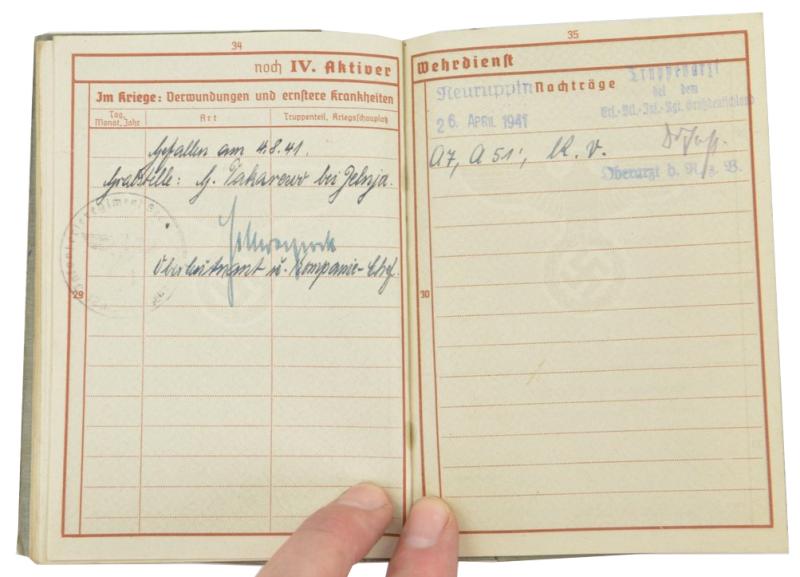 34
noch IV. Aktiver
Im Kriege: Verwundungen und ernstere Krankheiten
Tag, Monat, Jahr
Art
Truppenteil, Kriegsschauplatz
Gefallen am 4.8.41.
Grabstelle: G. Takarewo bei Jelnja.
Oberleutnant u. Kompanie-Chef.
29
35
Wehrdienst
Nachträge
Neuruppin
26. APRIL 1941
Truppenarzt
bei dem
Großdeutschland
A7, A 51, k. v.
Oberarzt d. R. z. V.
30